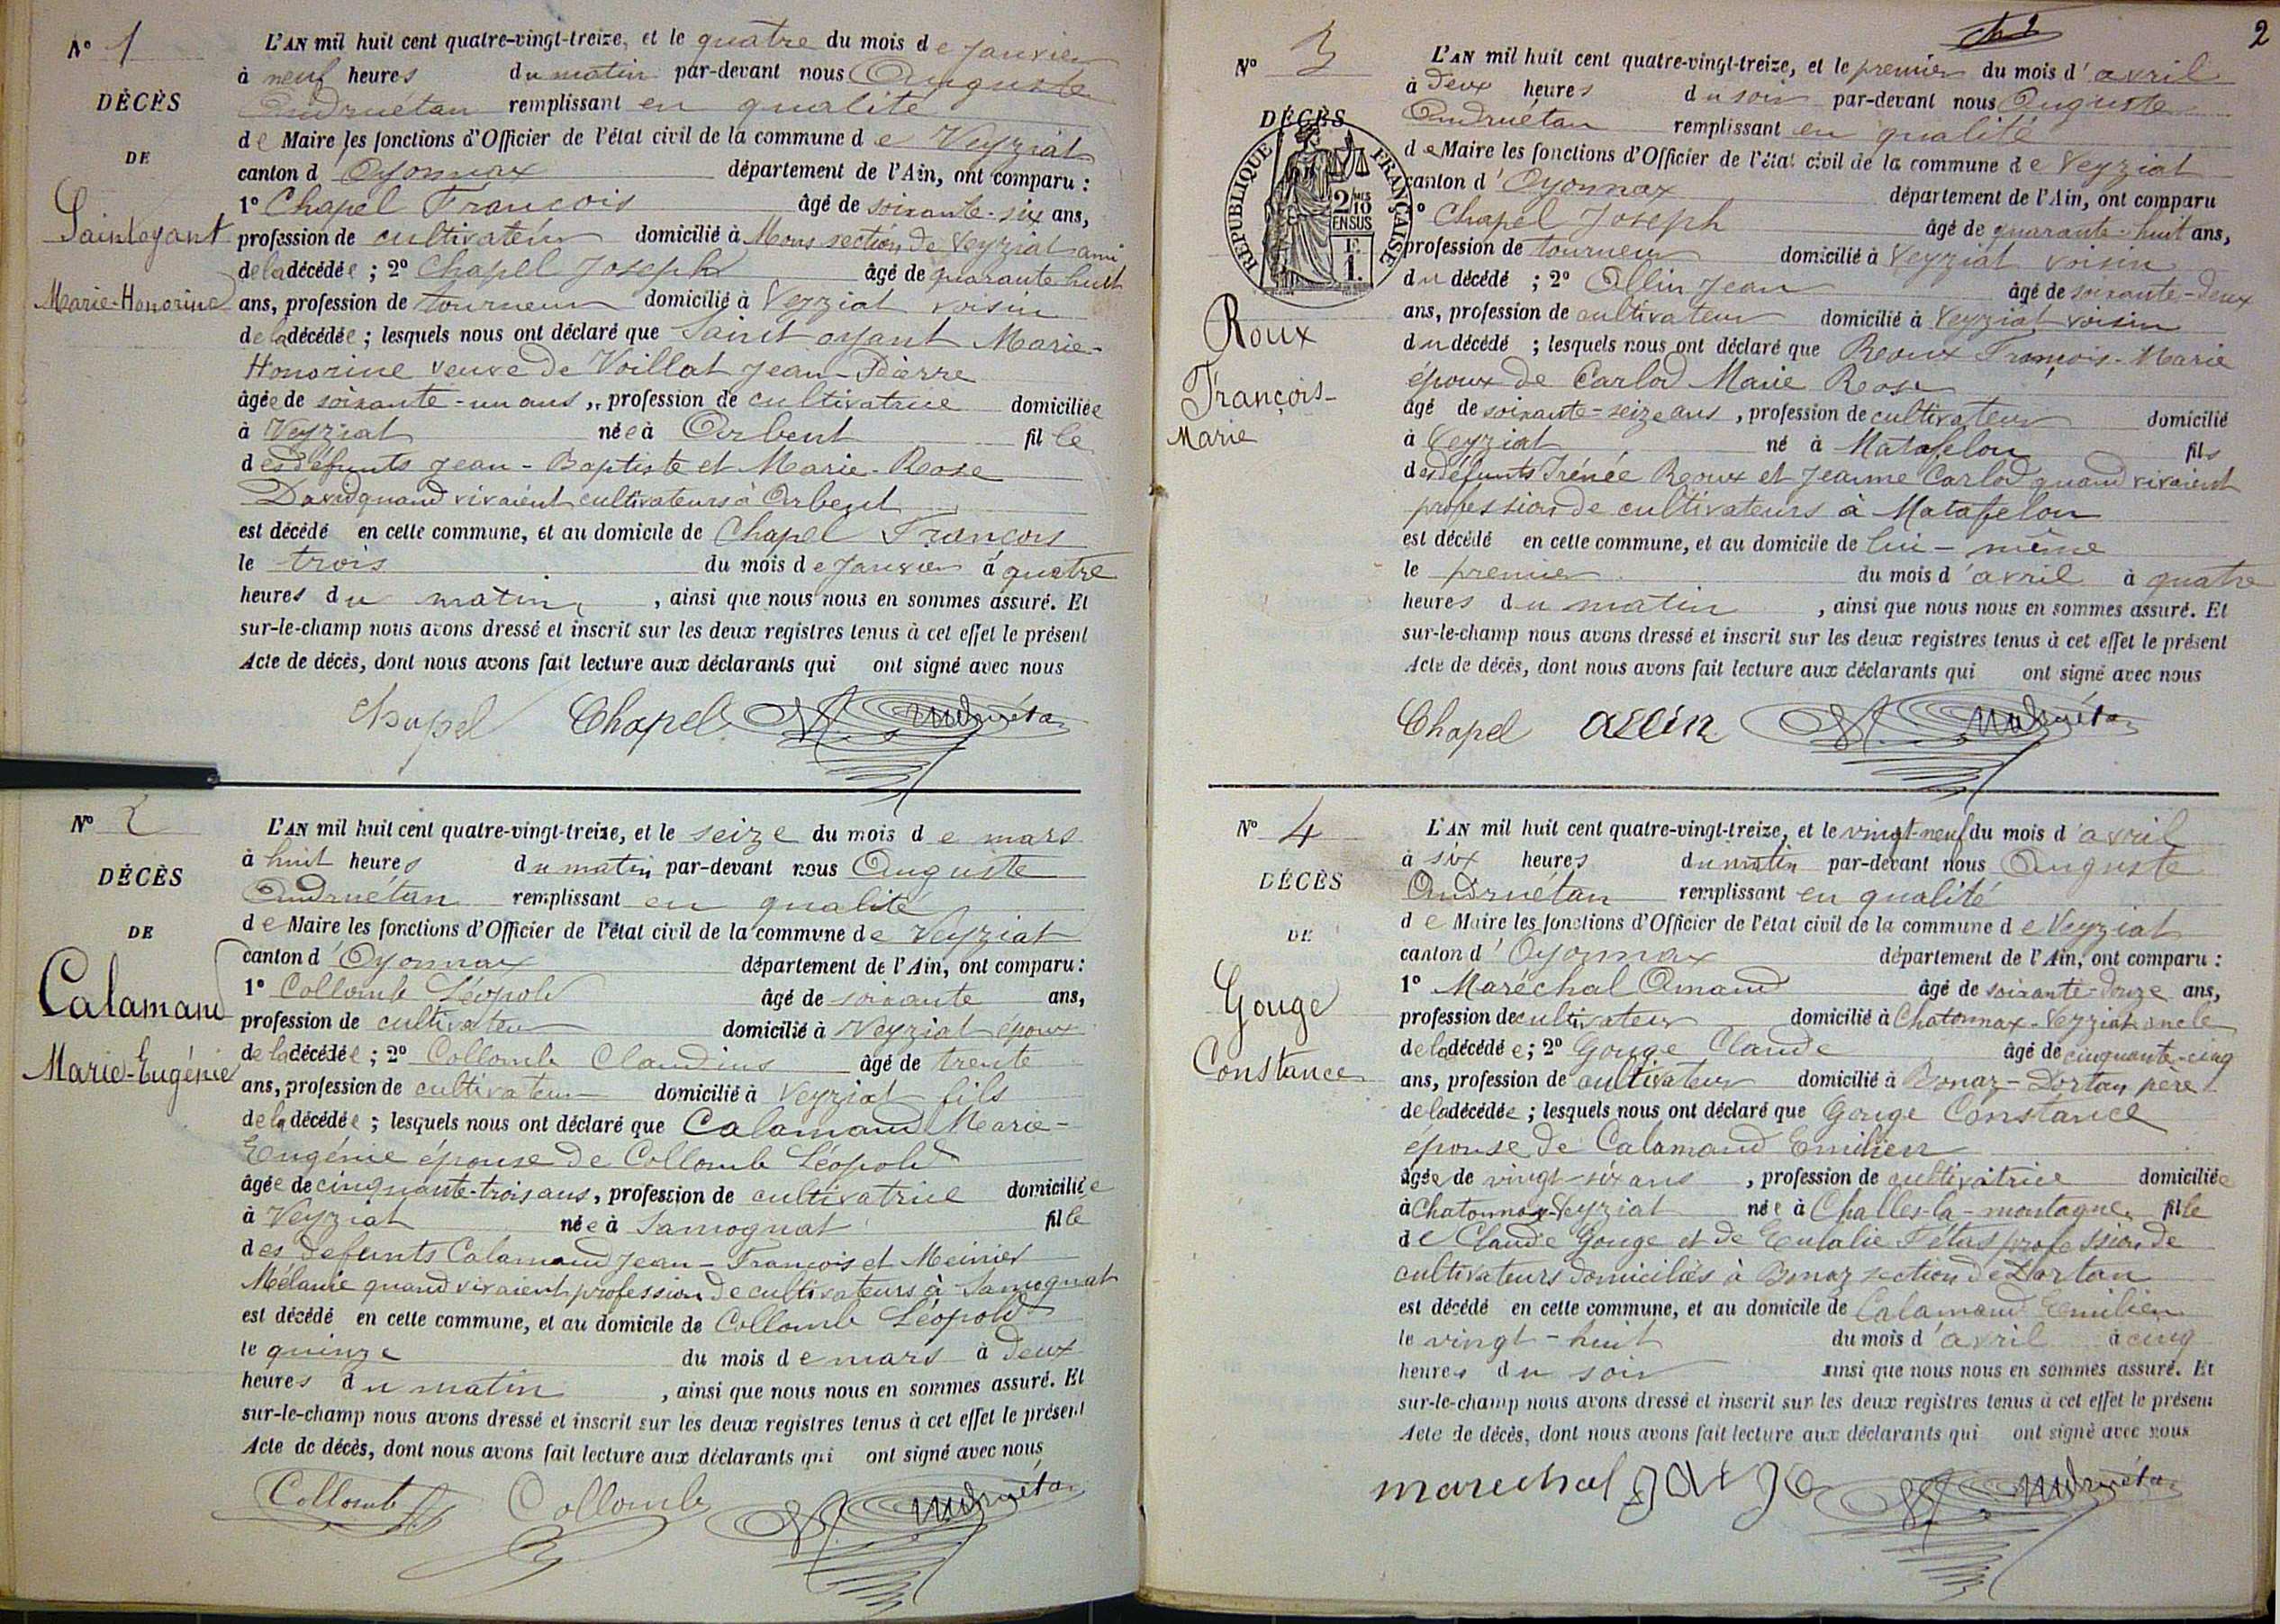 N° 1
DÉCÈS
DE
Saintoyant
Marie-Honorine
L'AN mil huit cent quatre-vingt-treize, et le quatre du mois de Janvier
à neuf heures du matin par-devant nous Auguste
Andruétan remplissant en qualité
de Maire les fonctions d'Officier de l'état civil de la commune de Veyziat
canton d Oyonnax département de l'Ain, ont comparu :
1° Chapel François âgé de soixante-six ans,
profession de cultivateur domicilié à Mons section de Veyziat ami
de la décédée ; 2° Chapel Joseph âgé de quarante huit
ans, profession de tourneur domicilié à Veyziat voisin
de la décédée ; lesquels nous ont déclaré que Saint oyant Marie-
Honorine veuve de Voillat Jean-Pierre
âgée de soixante-un ans, profession de cultivatrice domiciliée
à Veyziat née à Arbent fille
des défunts Jean-Baptiste et Marie-Rose
David quand vivaient cultivateurs à Arbent
est décédé en cette commune, et au domicile de Chapel François
le trois du mois de Janvier à quatre
heures du matin, ainsi que nous nous en sommes assuré. Et
sur-le-champ nous avons dressé et inscrit sur les deux registres tenus à cet effet le présent
Acte de décès, dont nous avons fait lecture aux déclarants qui ont signé avec nous
Chapel Chapel Andruétan
N° 2
DÉCÈS
DE
Calamand
Marie-Eugénie
L'AN mil huit cent quatre-vingt-treize, et le seize du mois de mars
à huit heures du matin par-devant nous Auguste
Andruétan remplissant en qualité
de Maire les fonctions d'Officier de l'état civil de la commune de Veyziat
canton d'Oyonnax département de l'Ain, ont comparu :
1° Collomb Léopold âgé de soixante ans,
profession de cultivateur domicilié à Veyziat époux
de la décédée ; 2° Collomb Claudius âgé de trente
ans, profession de cultivateur domicilié à Veyziat fils
de la décédée ; lesquels nous ont déclaré que Calamand Marie-
Eugénie épouse de Collomb Léopold
âgée de cinquante-trois ans, profession de cultivatrice domiciliée
à Veyziat née à Samognat fille
des défunts Calamand Jean-François et Meinier
Mélanie quand vivaient profession de cultivateurs à Samognat
est décédé en cette commune, et au domicile de Collomb Léopold
le quinze du mois de mars à deux
heures du matin, ainsi que nous nous en sommes assuré. Et
sur-le-champ nous avons dressé et inscrit sur les deux registres tenus à cet effet le présent
Acte de décès, dont nous avons fait lecture aux déclarants qui ont signé avec nous
Collomb Collomb Andruétan
2
N° 3
DÉCÈS
RÉPUBLIQUE FRANÇAISE
2/10 EN SUS
1 F.
Roux
François-
Marie
L'AN mil huit cent quatre-vingt-treize, et le premier du mois d'avril
à deux heures du soir par-devant nous Auguste
Andruétan remplissant en qualité
de Maire les fonctions d'Officier de l'état civil de la commune de Veyziat
canton d'Oyonnax département de l'Ain, ont comparu
1° Chapel Joseph âgé de quarante-huit ans,
profession de tourneur domicilié à Veyziat voisin
du décédé ; 2° Allin Jean âgé de soixante-deux
ans, profession de cultivateur domicilié à Veyziat voisin
du décédé ; lesquels nous ont déclaré que Roux François-Marie
époux de Carlod Marie Rose
âgé de soixante-seize ans, profession de cultivateur domicilié
à Veyziat né à Matafelon fils
des défunts Irénée Roux et Jeanne Carlod quand vivaient
profession de cultivateurs à Matafelon
est décédé en cette commune, et au domicile de lui-même
le premier du mois d'avril à quatre
heures du matin, ainsi que nous nous en sommes assuré. Et
sur-le-champ nous avons dressé et inscrit sur les deux registres tenus à cet effet le présent
Acte de décès, dont nous avons fait lecture aux déclarants qui ont signé avec nous
Chapel allin Andruétan
N° 4
DÉCÈS
DE
Gouge
Constance
L'AN mil huit cent quatre-vingt-treize, et le vingt-neuf du mois d'avril
à six heures du matin par-devant nous Auguste
Andruétan remplissant en qualité
de Maire les fonctions d'Officier de l'état civil de la commune de Veyziat
canton d'Oyonnax département de l'Ain, ont comparu :
1° Maréchal Amand âgé de soixante-douze ans,
profession de cultivateur domicilié à Chatonnax-Veyziat oncle
de la décédée ; 2° Gouge Claude âgé de cinquante-cinq
ans, profession de cultivateur domicilié à Bonaz-Dortan père
de la décédée ; lesquels nous ont déclaré que Gouge Constance
épouse de Calamand Emilien
âgée de vingt-six ans, profession de cultivatrice domiciliée
à Chatonnax-Veyziat née à Challes-la-montagne fille
de Claude Gouge et de Eulalie Tétas profession de
cultivateurs domiciliés à Bonaz section de Dortan
est décédé en cette commune, et au domicile de Calamand Emilien
le vingt-huit du mois d'avril à cinq
heures du soir ainsi que nous nous en sommes assuré. Et
sur-le-champ nous avons dressé et inscrit sur les deux registres tenus à cet effet le présent
Acte de décès, dont nous avons fait lecture aux déclarants qui ont signé avec nous
marechal gouge Andruétan